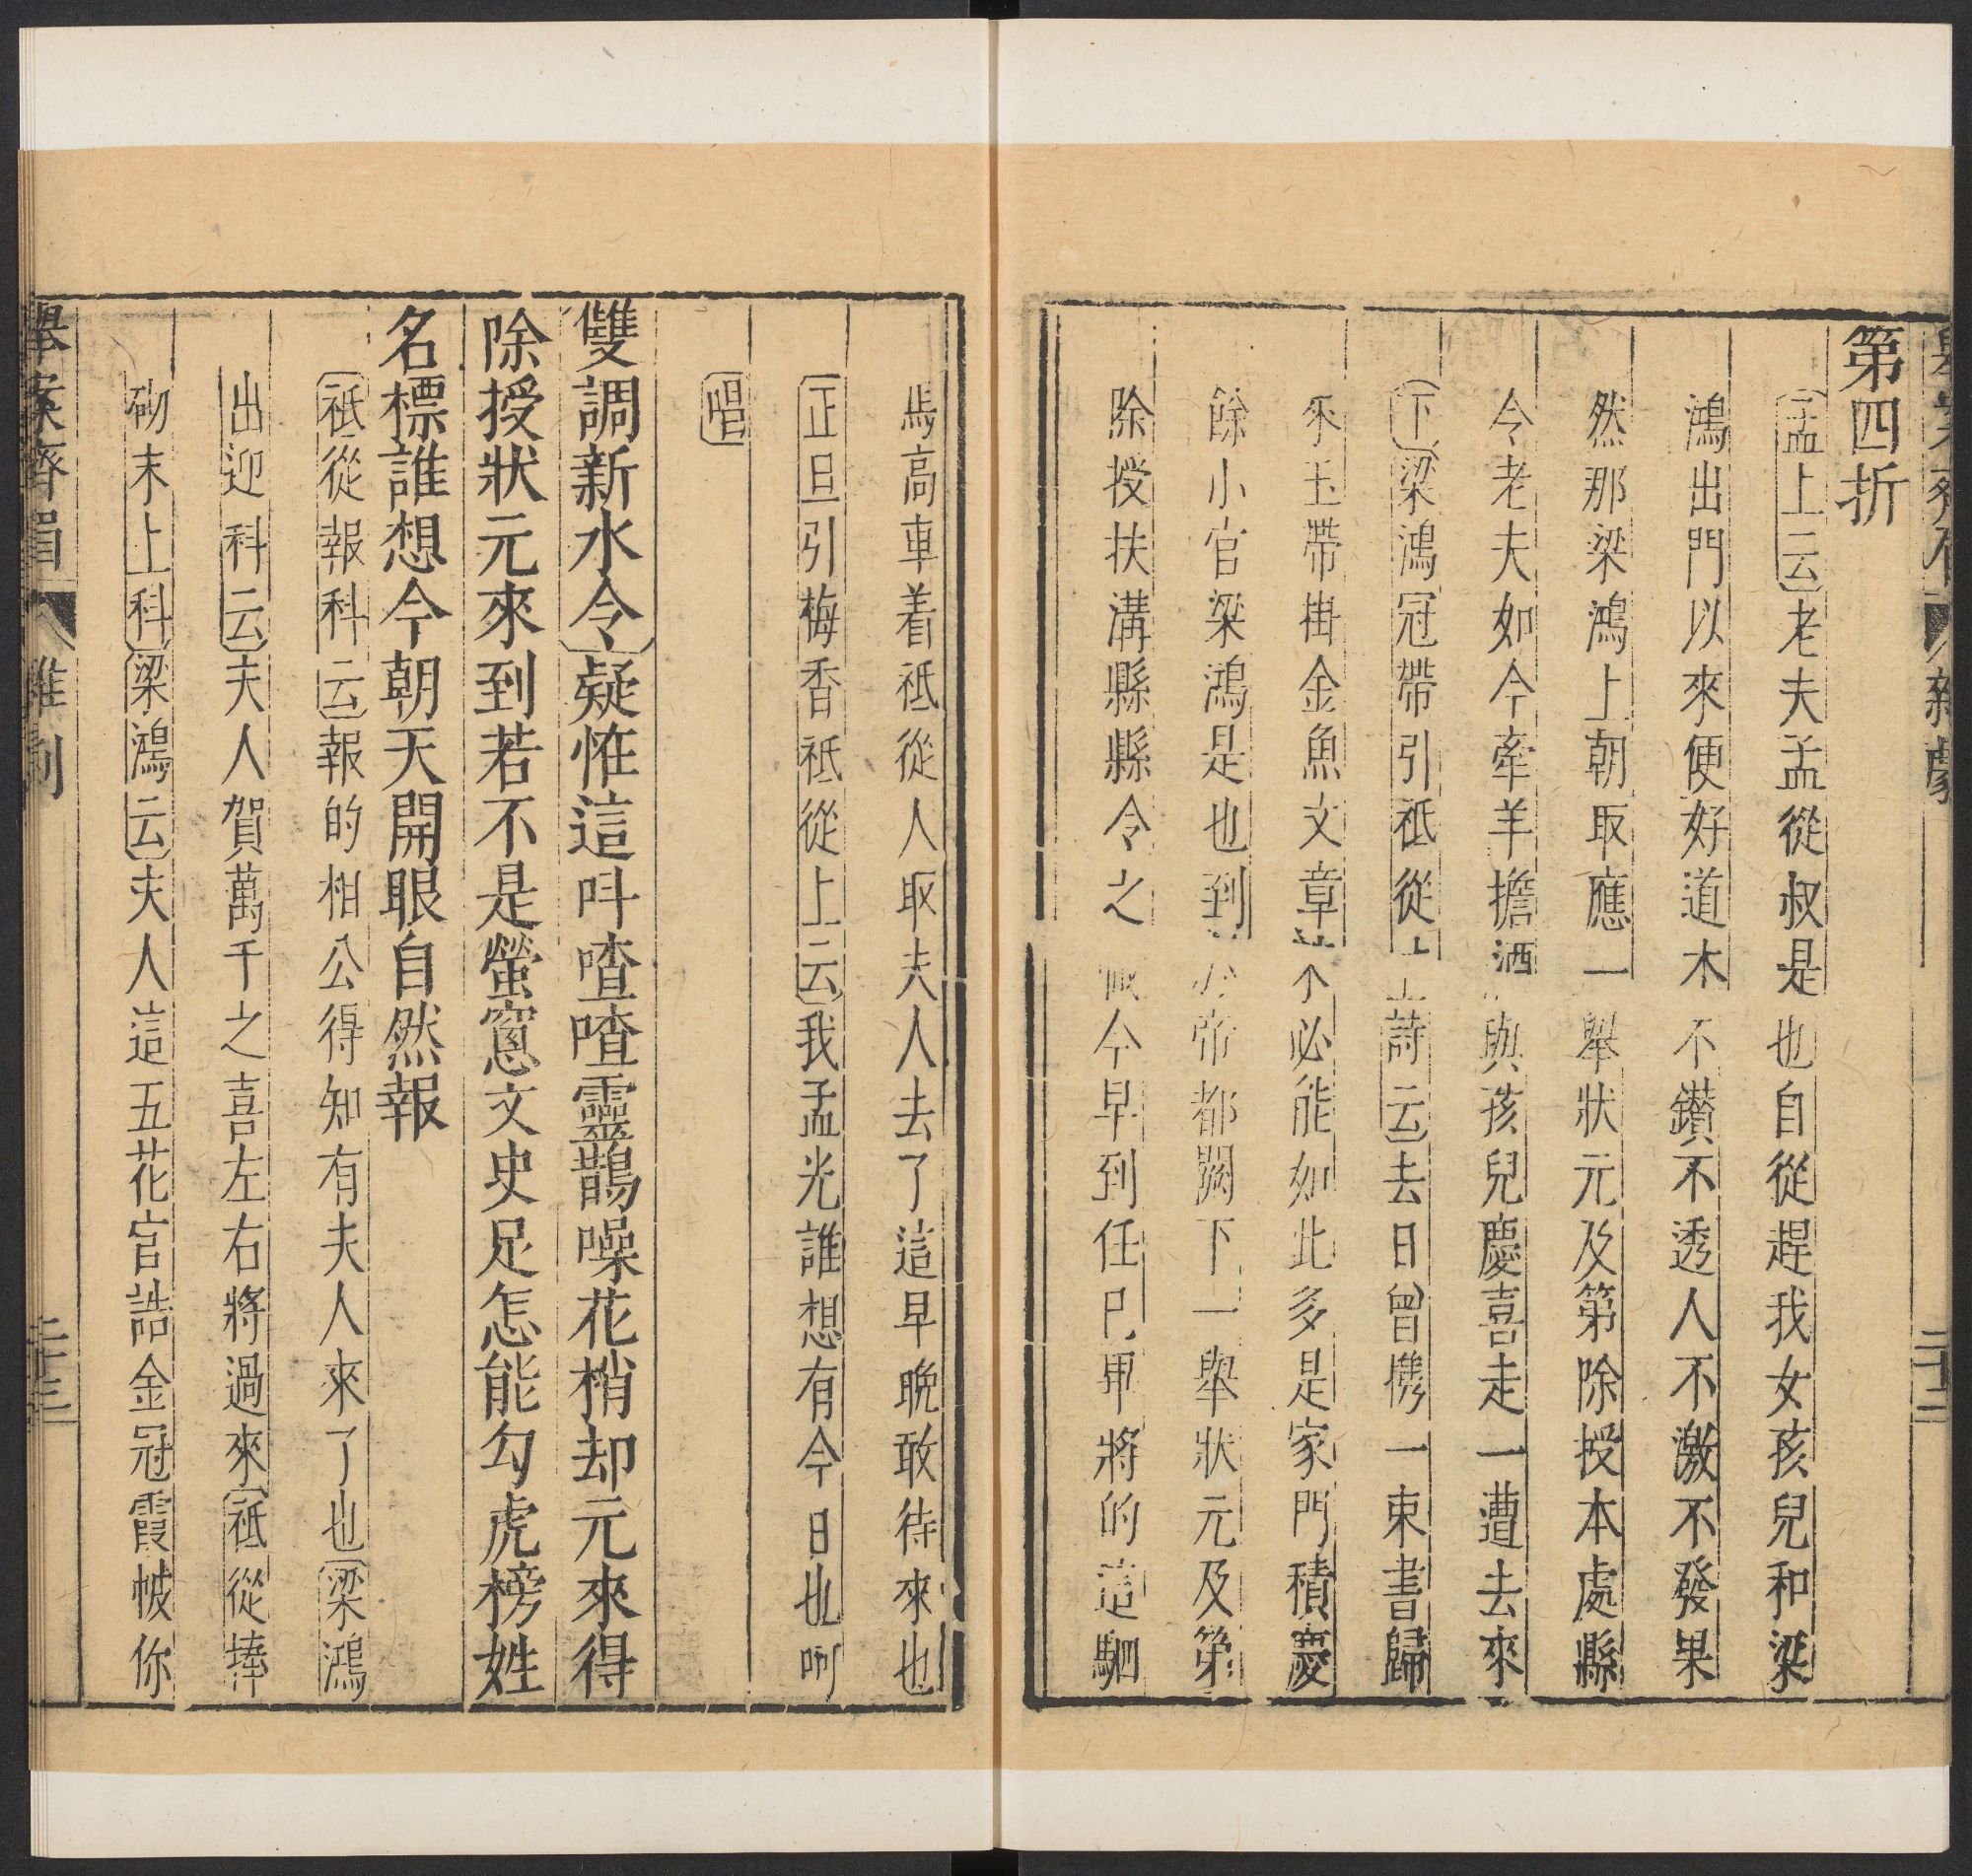 第四折
〔孟上云〕老夫孟從叔是也自從趕我女孩兒和梁
鴻出門以來便好道木不鑚不透人不激不發果
然那梁鴻上朝取應一舉狀元及第除授本處縣
令老夫如今牽羊擔酒與孩兒慶喜走一遭去來
〔下〕〔梁鴻冠帶引祗從上詩云〕去日曾攜一束書歸
來玉帶掛金魚文章不必能如此多是家門積慶
餘小官梁鴻是也到於帝都闕下一舉狀元及第
除授扶溝縣縣令之職今早到任巳畢將的這駟
馬高車着祗從人取夫人去了這早晚敢待來也
〔正旦引梅香祗從上云〕我孟光誰想有今日也呵
〔唱〕
雙調新水令〕疑惟這呌喳喳靈鵲噪花梢却元來得
除授狀元來到若不是螢窻文史足怎能勾虎榜姓
名標誰想今朝天開眼自然報
〔祗從報科云〕報的相公得知有夫人來了也〔梁鴻
出迎科云〕夫人賀萬千之喜左右將過來〔祗從捧
砌末上科〕〔梁鴻云〕夫人這五花官誥金冠霞帔你
舉案齊眉
雜劇
二十三